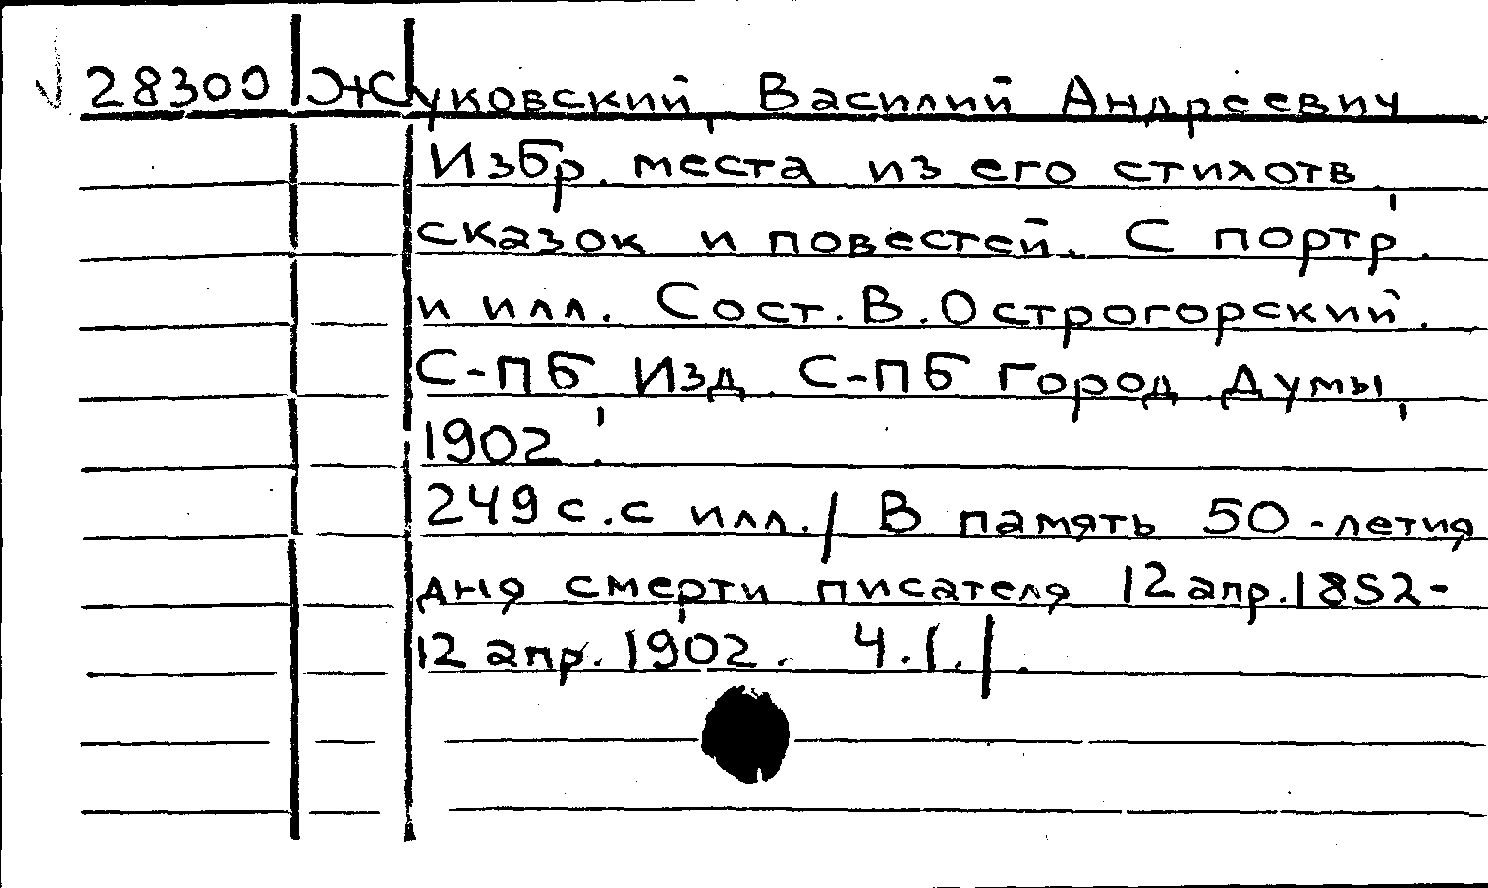 28309 Жуковский, Василий Андреевич
Избр. места из его стихотв.,
сказок и повестей. С портр.
и илл. Сост. В. Острогорский.
С-ПБ, Изд. С-ПБ Город. Думы,
1902.
249 с. с илл. / В память 50-летия
дня смерти писателя 12 апр. 1852-
12 апр. 1902. Ч.I. /.